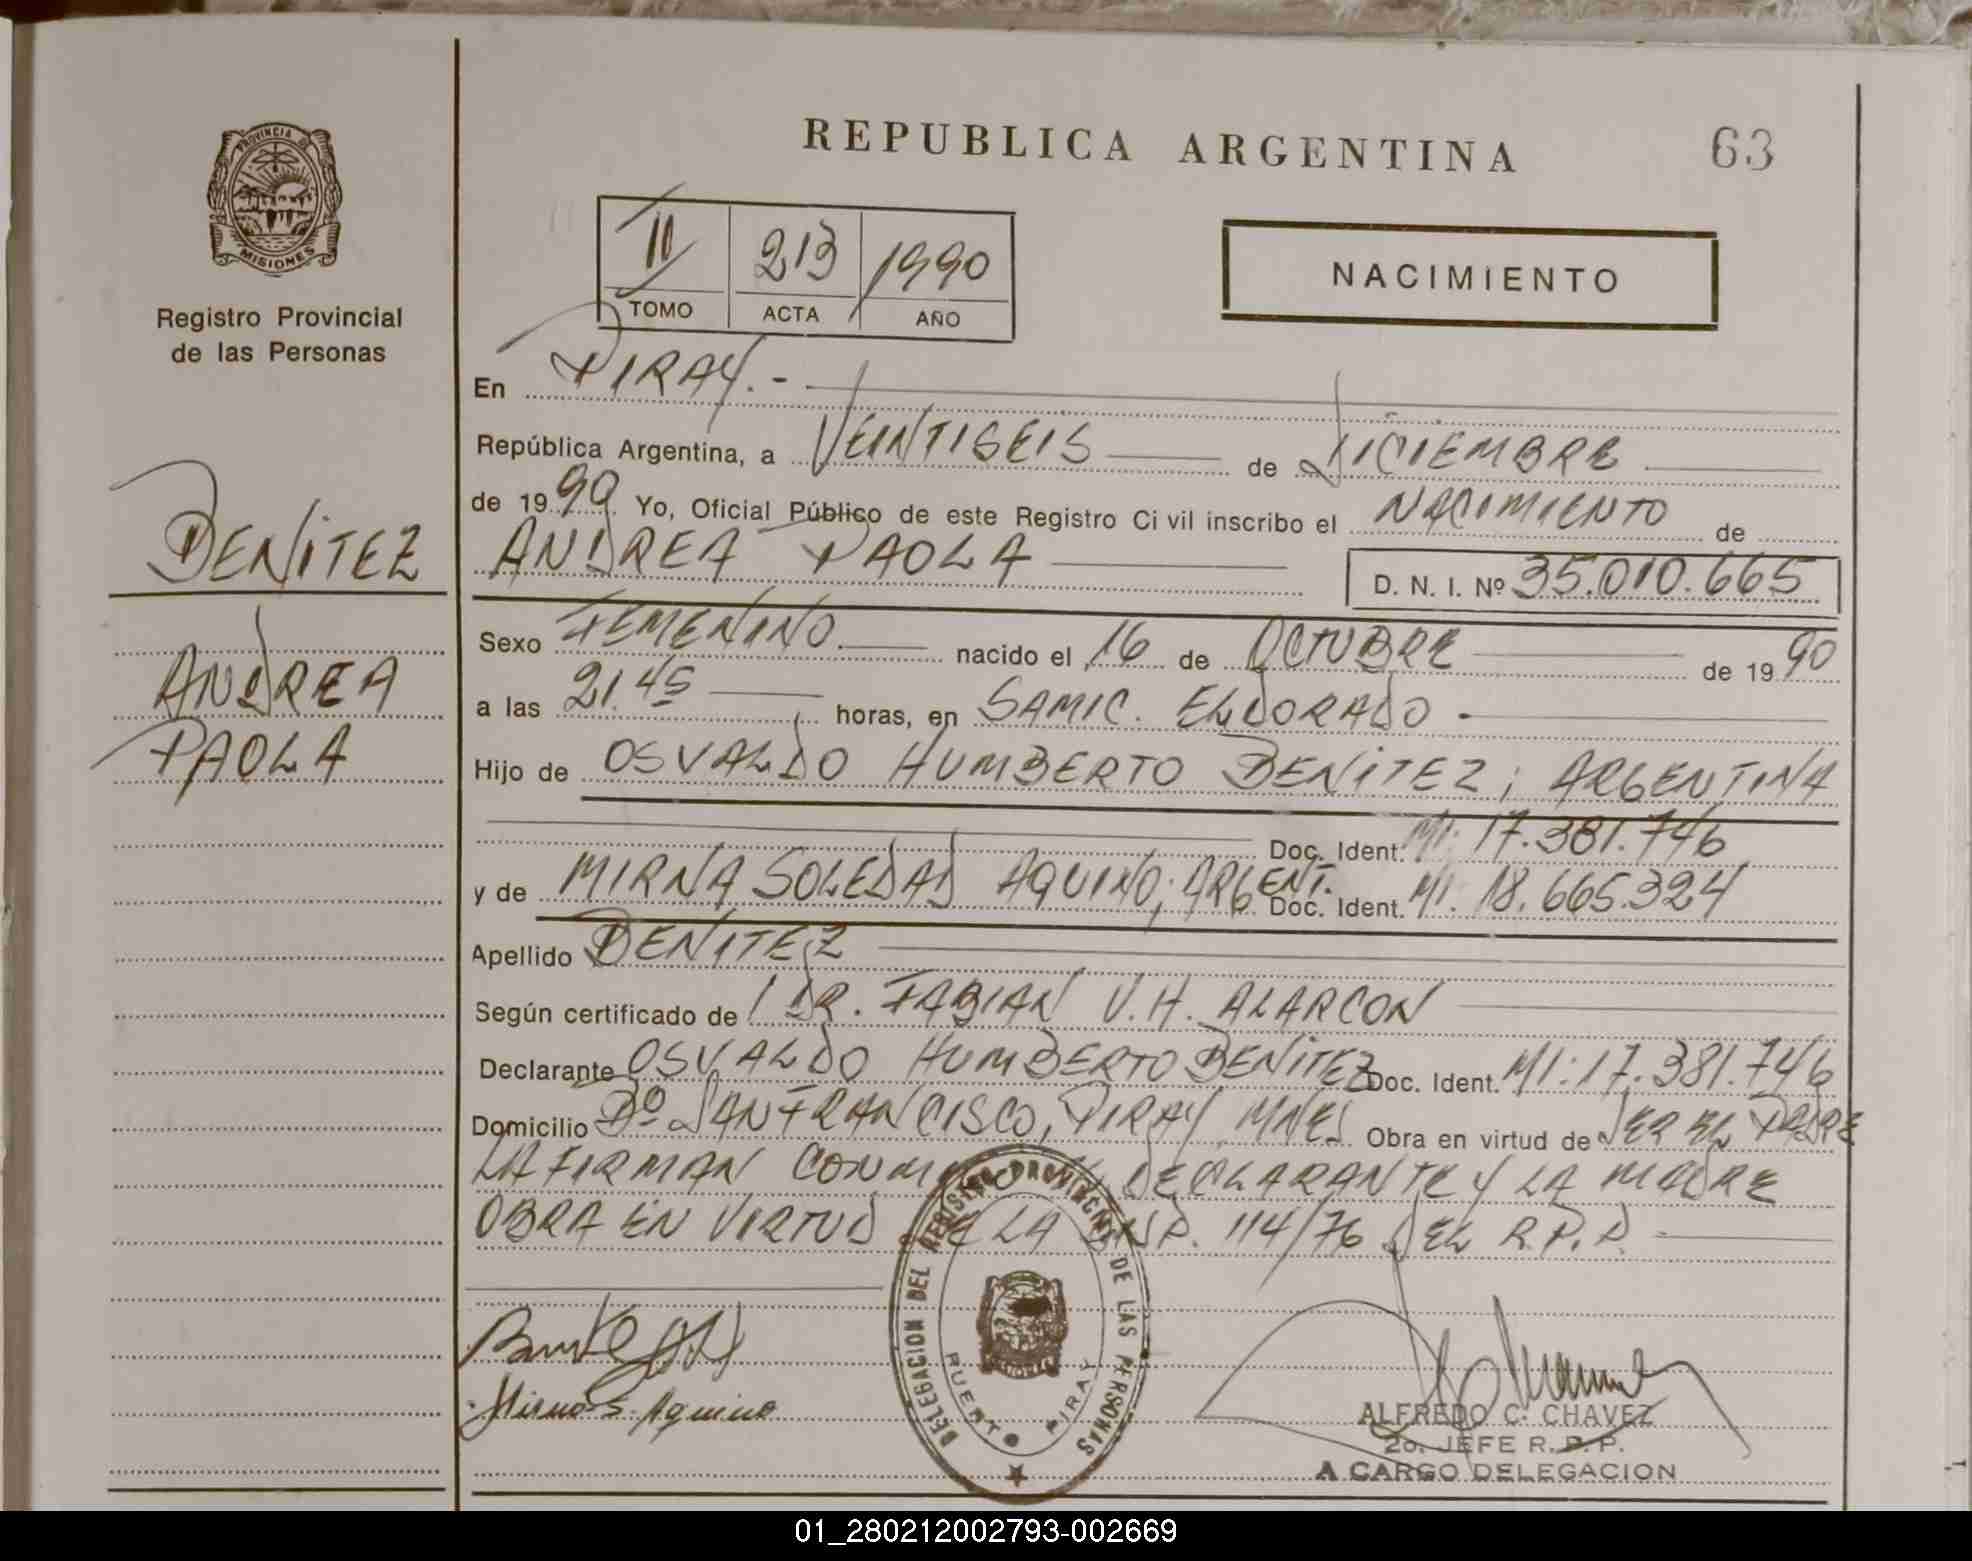 REPUBLICA ARGENTINA
63
PROVINCIA DE
MISIONES
Registro Provincial
de las Personas
II 213 1990
TOMO ACTA AÑO
NACIMIENTO
BENITEZ
ANDREA
PAOLA
En PIRAY.-
República Argentina, a VEINTISEIS de DICIEMBRE
de 1990 Yo, Oficial Público de este Registro Civil inscribo el NACIMIENTO de
ANDREA PAOLA D. N. I. Nº 35.010.665
Sexo FEMENINO nacido el 16 de OCTUBRE de 1990
a las 21.45 horas, en SAMIC. ELDORADO.
Hijo de OSVALDO HUMBERTO BENITEZ; ARGENTINA
Doc. Ident. MI: 17.381.746
y de MIRNA SOLEDAD AQUINO; ARGENT. Doc. Ident. MI. 18.665.324
Apellido BENITEZ
Según certificado de DR. FABIAN V.H. ALARCON
Declarante OSVALDO HUMBERTO BENITEZ Doc. Ident. MI: 17.381.746
Domicilio Bº SAN FRANCISCO, PIRAY, MNES Obra en virtud de SER EL PADRE
LA FIRMAN CONMIGO EL DECLARANTE Y LA MADRE
OBRA EN VIRTUD DE LA DISP. 114/76 DEL R.P.P.
Mirna S. Aquino
DELEGACION DEL REGISTRO PROVINCIAL DE LAS PERSONAS
PUERTO PIRAY
ALFREDO C. CHAVEZ
2o. JEFE R. P. P.
A CARGO DELEGACION
01_280212002793-002669